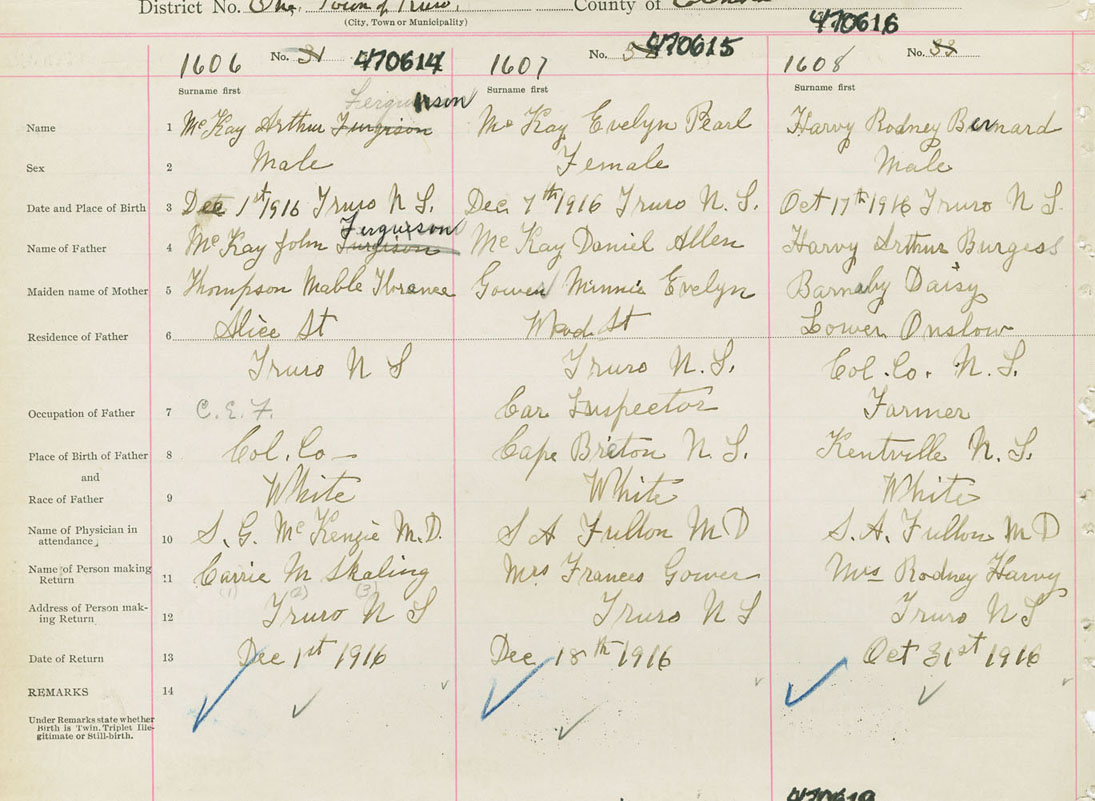 District No. One, Town of Truro. County of
(City, Town or Municipality)
470616
1606 No. 31 470614 1607 No. 470615 1608 No. 33
Surname first Surname first Surname first
Fergusson
Name 1 McKay Arthur Furgison McKay Evelyn Pearl Harvy Rodney Bernard
Sex 2 Male Female Male
Date and Place of Birth 3 Dec 1st 1916 Truro N S. Dec. 7th 1916 Truro N. S. Oct 17th 1916 Truro N S.
Fergusson
Name of Father 4 McKay John Furgison McKay Daniel Allen Harvy Arthur Burgess
Maiden name of Mother 5 Thompson Mable Florence Gowen Minnie Evelyn Barnaby Daisy
Residence of Father 6 Alice St St Lower Onslow
Truro N S Truro N. S. Col. Co. N. S.
Occupation of Father 7 C. E. F. Car Inspector Farmer
Place of Birth of Father 8 Col. Co— Cape Breton N. S. Kentville N. S.
and
Race of Father 9 White White White
Name of Physician in
attendance 10 S. G. McKenzie M. D. S A Fulton M D S. A. Fulton M D
Name of Person making
Return 11 Carrie M Skaling Mrs Frances Gower Mrs Rodney Harvy
(1) (2) (3)
Address of Person mak-
ing Return 12 Truro N S Truro N S Truro N S
Date of Return 13 Dec 1st 1916 Dec 18th 1916 Oct 31st 1916
REMARKS 14
Under Remarks state whether
Birth is Twin. Triplet Ille-
gitimate or Still-birth.